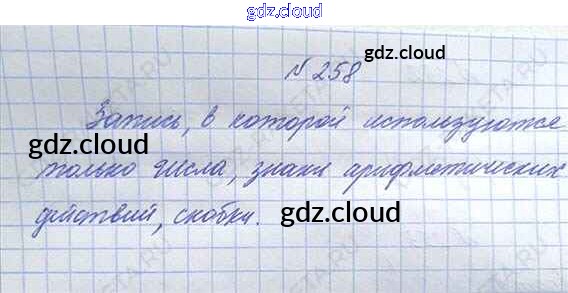 gdz.cloud
gdz.cloud
№ 258
Запись, в которой используются
gdz.cloud
только числа, знаки арифметических
действий, скобки.
gdz.cloud